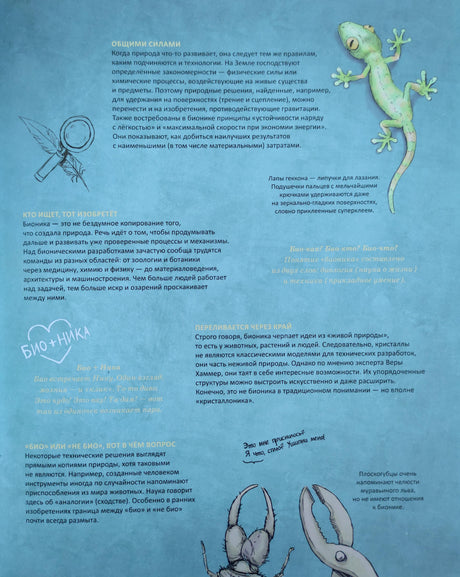 ОБЩИМИ СИЛАМИ
Когда природа что-то развивает, она следует тем же правилам,
каким подчиняются и технологии. На Земле господствуют
определённые закономерности — физические силы или
химические процессы, воздействующие на живые существа
и предметы. Поэтому природные решения, найденные, например,
для удержания на поверхностях (трение и сцепление), можно
перенести и на изобретения, противодействующие гравитации.
Также востребованы в бионике принципы «устойчивости наряду
с лёгкостью» и «максимальной скорости при экономии энергии».
Они показывают, как добиться наилучших результатов
с наименьшими (в том числе материальными) затратами.
Лапы геккона — липучки для лазания.
Подушечки пальцев с мельчайшими
крючками удерживаются даже
на зеркально-гладких поверхностях,
словно приклеенные суперклеем.
КТО ИЩЕТ, ТОТ ИЗОБРЕТЁТ
Бионика — это не бездумное копирование того,
что создала природа. Речь идёт о том, чтобы продумывать
дальше и развивать уже проверенные процессы и механизмы.
Над бионическими разработками зачастую сообща трудятся
команды из разных областей: от зоологии и ботаники
через медицину, химию и физику — до материаловедения,
архитектуры и машиностроения. Чем больше людей работает
над задачей, тем больше искр и озарений проскакивает
между ними.
Био-как? Био-кто? Био-что?
Понятие «бионика» составлено
из двух слов: биология (наука о жизни)
и техника (прикладное умение).
БИО+НИКА
Био + Ника
Био встречает Нику. Один взгляд,
жозник — и сплэнк. То ти дива.
Это чудо! Это как! Удав! — вот
так из одиночек возникает пара.
ПЕРЕЛИВАЕТСЯ ЧЕРЕЗ КРАЙ
Строго говоря, бионика черпает идеи из «живой природы»,
то есть у животных, растений и людей. Следовательно, кристаллы
не являются классическими моделями для технических разработок,
они часть неживой природы. Однако по мнению эксперта Веры
Хаммер, они таят в себе интересные возможности. Их упорядоченные
структуры можно выстроить искусственно и даже расширить.
Конечно, это не бионика в традиционном понимании — но вполне
«кристаллоника».
«БИО» ИЛИ «НЕ БИО», ВОТ В ЧЁМ ВОПРОС
Некоторые технические решения выглядят
прямыми копиями природы, хотя таковыми
не являются. Например, созданные человеком
инструменты иногда по случайности напоминают
приспособления из мира животных. Наука говорит
здесь об «аналогии» (сходстве). Особенно в ранних
изобретениях граница между «био» и «не био»
почти всегда размыта.
Это мне приснилось:
Я что, сплю? Ущипни меня!
Плоскогубцы очень
напоминают челюсти
муравьиного льва,
но не имеют отношения
к бионике.